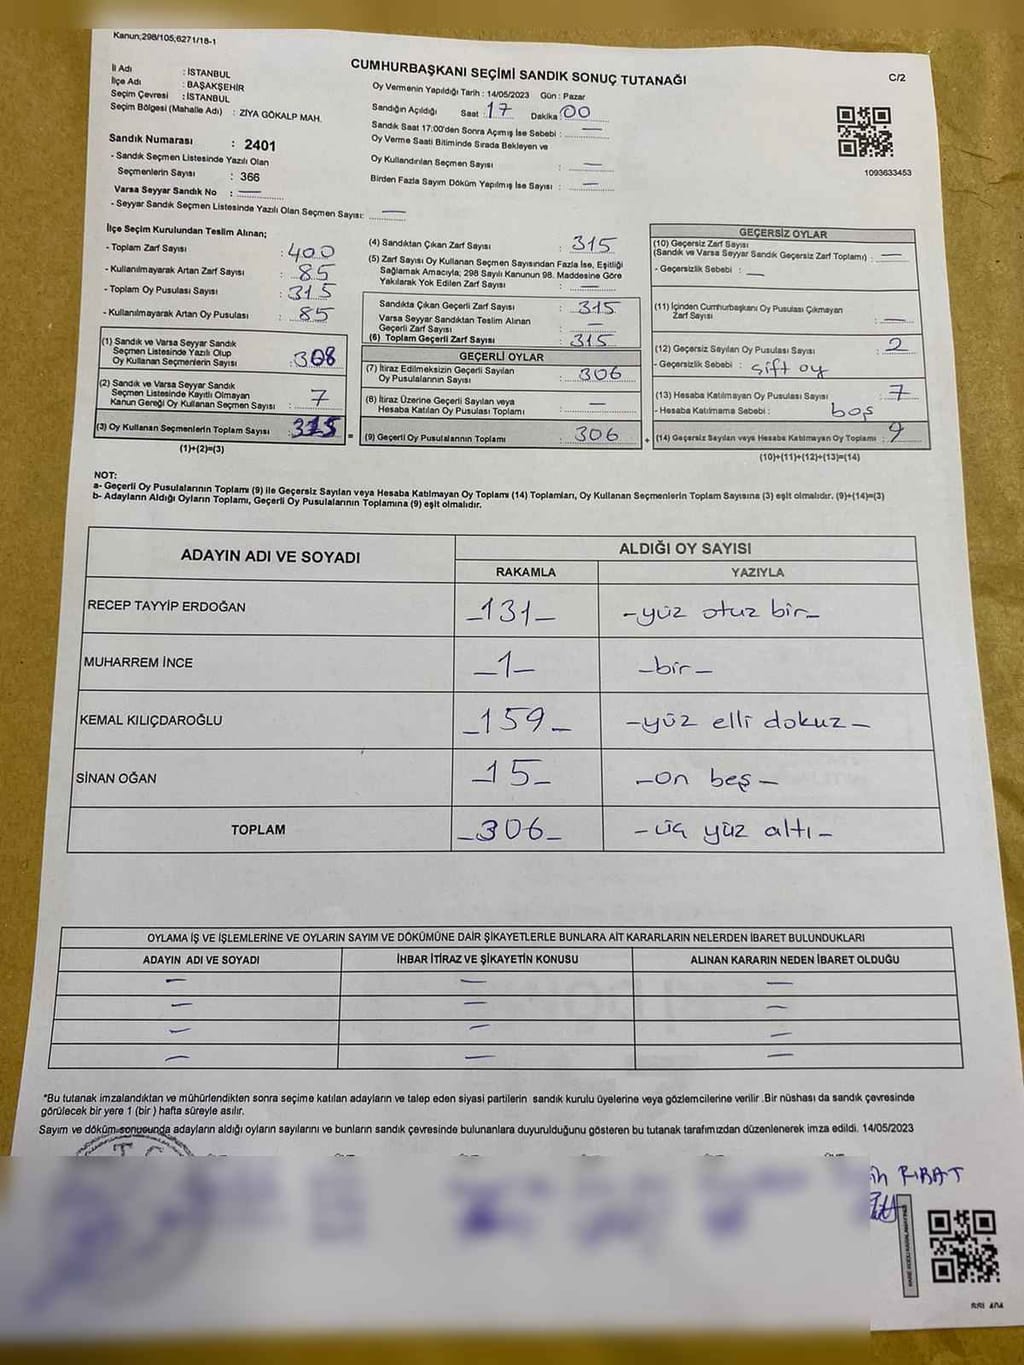 Kanun;298/105,6271/18-1
CUMHURBAŞKANI SEÇİMİ SANDIK SONUÇ TUTANAĞI
C/2
İl Adı : İSTANBUL
İlçe Adı : BAŞAKŞEHİR
Seçim Çevresi : İSTANBUL
Seçim Bölgesi (Mahalle Adı) : ZİYA GÖKALP MAH.
Sandık Numarası : 2401
- Sandık Seçmen Listesinde Yazılı Olan
Seçmenlerin Sayısı : 366
Varsa Seyyar Sandık No : —
- Seyyar Sandık Seçmen Listesinde Yazılı Olan Seçmen Sayısı: —
Oy Vermenin Yapıldığı Tarih : 14/05/2023 Gün : Pazar
Sandığın Açıldığı Saat : 17 Dakika : 00
Sandık Saat 17:00'den Sonra Açımış İse Sebebi : —
Oy Verme Saati Bitiminde Sırada Bekleyen ve
Oy Kullandırılan Seçmen Sayısı : —
Birden Fazla Sayım Döküm Yapılmış İse Sayısı : —
1093633453
İlçe Seçim Kurulundan Teslim Alınan;
- Toplam Zarf Sayısı : 400
- Kullanılmayarak Artan Zarf Sayısı : 85
- Toplam Oy Pusulası Sayısı : 315
- Kullanılmayarak Artan Oy Pusulası : 85
(1) Sandık ve Varsa Seyyar Sandık
Seçmen Listesinde Yazılı Olup
Oy Kullanan Seçmenlerin Sayısı : 308
(2) Sandık ve Varsa Seyyar Sandık
Seçmen Listesinde Kayıtlı Olmayan
Kanun Gereği Oy Kullanan Seçmen Sayısı : 7
(3) Oy Kullanan Seçmenlerin Toplam Sayısı : 315
(1)+(2)=(3)
(4) Sandıktan Çıkan Zarf Sayısı : 315
(5) Zarf Sayısı Oy Kullanan Seçmen Sayısından Fazla İse, Eşitliği
Sağlamak Amacıyla; 298 Sayılı Kanunun 98. Maddesine Göre
Yakılarak Yok Edilen Zarf Sayısı : —
Sandıkta Çıkan Geçerli Zarf Sayısı : 315
Varsa Seyyar Sandıktan Teslim Alınan
Geçerli Zarf Sayısı : —
(6) Toplam Geçerli Zarf Sayısı : 315
GEÇERLİ OYLAR
(7) İtiraz Edilmeksizin Geçerli Sayılan
Oy Pusulalarının Sayısı : 306
(8) İtiraz Üzerine Geçerli Sayılan veya
Hesaba Katılan Oy Pusulası Toplamı : —
(9) Geçerli Oy Pusulalarının Toplamı : 306
GEÇERSİZ OYLAR
(10) Geçersiz Zarf Sayısı
(Sandık ve Varsa Seyyar Sandık Geçersiz Zarf Toplamı) : —
- Geçersizlik Sebebi : —
(11) İçinden Cumhurbaşkanı Oy Pusulası Çıkmayan
Zarf Sayısı : —
(12) Geçersiz Sayılan Oy Pusulası Sayısı : 2
- Geçersizlik Sebebi : çift oy
(13) Hesaba Katılmayan Oy Pusulası Sayısı : 7
- Hesaba Katılmama Sebebi : boş
(14) Geçersiz Sayılan veya Hesaba Katılmayan Oy Toplamı : 9
(10)+(11)+(12)+(13)=(14)
NOT:
a- Geçerli Oy Pusulalarının Toplamı (9) ile Geçersiz Sayılan veya Hesaba Katılmayan Oy Toplamı (14) Toplamları, Oy Kullanan Seçmenlerin Toplam Sayısına (3) eşit olmalıdır. (9)+(14)=(3)
b- Adayların Aldığı Oyların Toplamı, Geçerli Oy Pusulalarının Toplamına (9) eşit olmalıdır.
ADAYIN ADI VE SOYADI
ALDIĞI OY SAYISI
RAKAMLA YAZIYLA
RECEP TAYYİP ERDOĞAN -131- -yüz otuz bir-
MUHARREM İNCE -1- -bir-
KEMAL KILIÇDAROĞLU -159- -yüz elli dokuz-
SİNAN OĞAN -15- -on beş-
TOPLAM -306- -üç yüz altı-
OYLAMA İŞ VE İŞLEMLERİNE VE OYLARIN SAYIM VE DÖKÜMÜNE DAİR ŞİKAYETLERLE BUNLARA AİT KARARLARIN NELERDEN İBARET BULUNDUKLARI
ADAYIN ADI VE SOYADI İHBAR İTİRAZ VE ŞİKAYETİN KONUSU ALINAN KARARIN NEDEN İBARET OLDUĞU
— — —
— — —
— — —
— — —
*Bu tutanak imzalandıktan ve mühürlendikten sonra seçime katılan adayların ve talep eden siyasi partilerin sandık kurulu üyelerine veya gözlemcilerine verilir .Bir nüshası da sandık çevresinde
görülecek bir yere 1 (bir ) hafta süreyle asılır.
Sayım ve döküm sonucunda adayların aldığı oyların sayılarını ve bunların sandık çevresinde bulunanlara duyurulduğunu gösteren bu tutanak tarafımızdan düzenlenerek imza edildi. 14/05/2023
T.C.
FIRAT